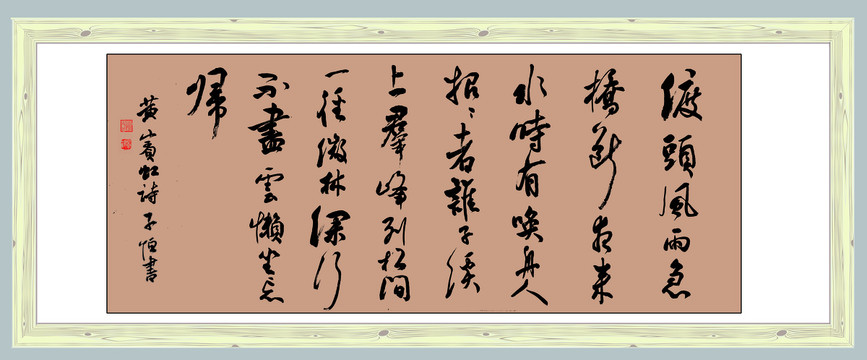 渡頭風雨急
橋斷夜来
水時有喚舟人
招〻者誰子溪
上羣峰列松間
一徑微林深行
不盡雲懶坐忘
帰
黃賓虹詩子恒書